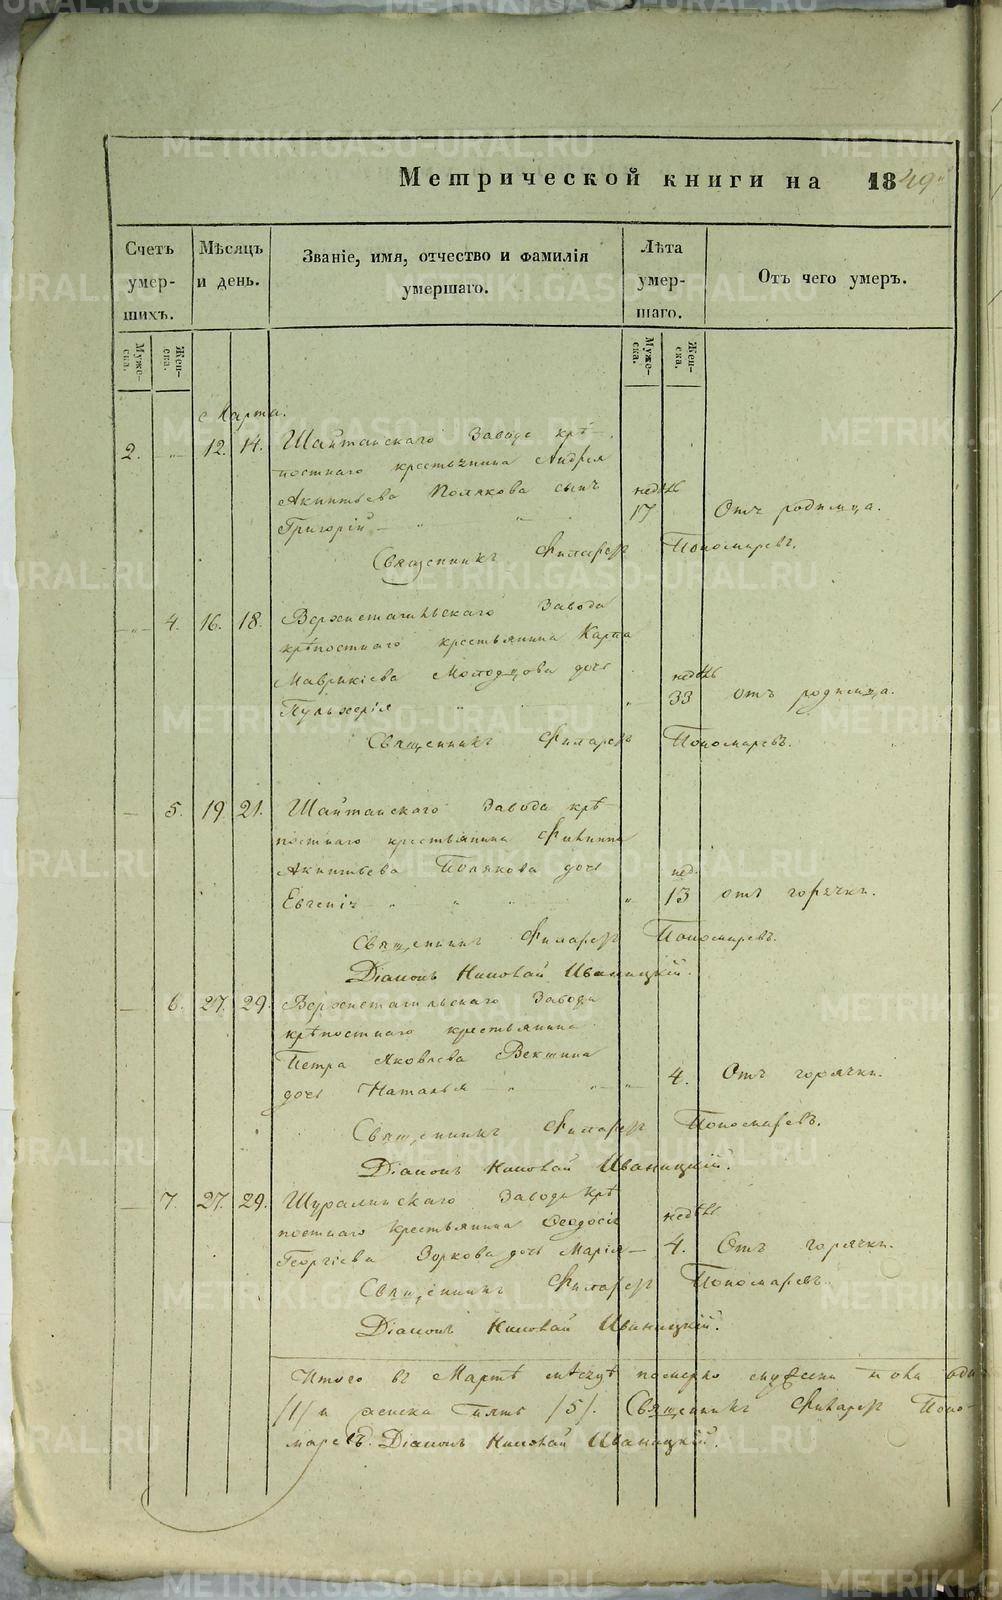 Метрической книги на 1849
Счетъ умершихъ.
Мѣсяцъ и день.
Званіе, имя, отчество и фамилія умершаго.
Лѣта умершаго.
Отъ чего умеръ.
Муже-ска. Жен-ска. Муже-ска. Жен-ска.
Марта.
2. „ 12. 14. Шайтанскаго Завода крѣ-
постнаго крестьянина Андрея
Акинтьева Полякова сынъ недѣль
Григорій — „ „ 17 Отъ родимца.
Священникъ Филаретъ Пономаревъ.
„ 4. 16. 18. Верхнетагильскаго Завода
крѣпостнаго крестьянина Карпа
Маврикіева Молодцова дочь недѣль
Пульхерія „ „ 33 отъ родимца.
Священникъ Филаретъ Пономаревъ.
— 5. 19. 21. Шайтанскаго Завода крѣ-
постнаго крестьянина Филиппа
Акинтьева Полякова дочь нед.
Евгенія „ „ „ „ 13 отъ горячки.
Священникъ Филаретъ Пономаревъ.
Діаконъ Николай Иваницкій.
— 6. 27. 29. Верхнетагильскаго Завода
крѣпостнаго крестьянина
Петра Яковлева Векшина
дочь Наталья — „ „ — „ 4. Отъ горячки.
Священникъ Филаретъ Пономаревъ.
Діаконъ Николай Иваницкій.
— 7. 27. 29. Шуралинскаго Завода крѣ
постнаго крестьянина Ѳеодосія недѣль
Георгіева Зоркова дочь Марія — 4. Отъ горячки.
Священникъ Филаретъ Пономаревъ.
Діаконъ Николай Иваницкій.
Итого въ Мартѣ мѣсяцѣ померло мужеска пола оди
/1/ и женска пять /5/. Священникъ Филаретъ Поно-
маревъ. Діаконъ Николай Иваницкій.
METRIKI.GASO-URAL.RU